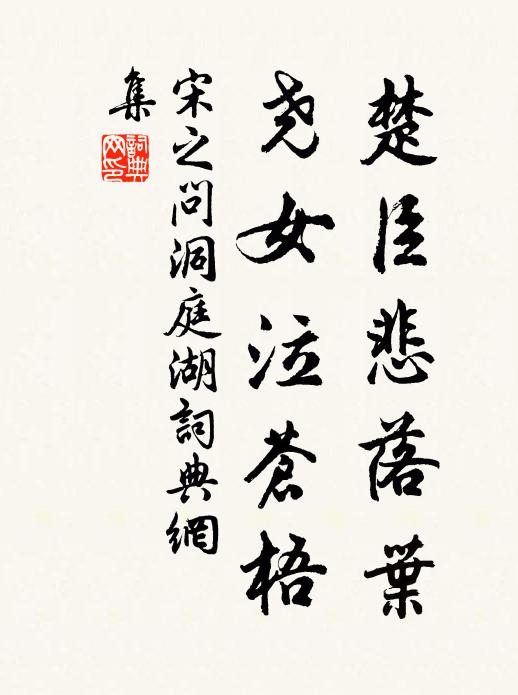 楚臣悲落葉
尧女泣蒼梧
宋之问洞庭湖詞典網
集
詞典网印